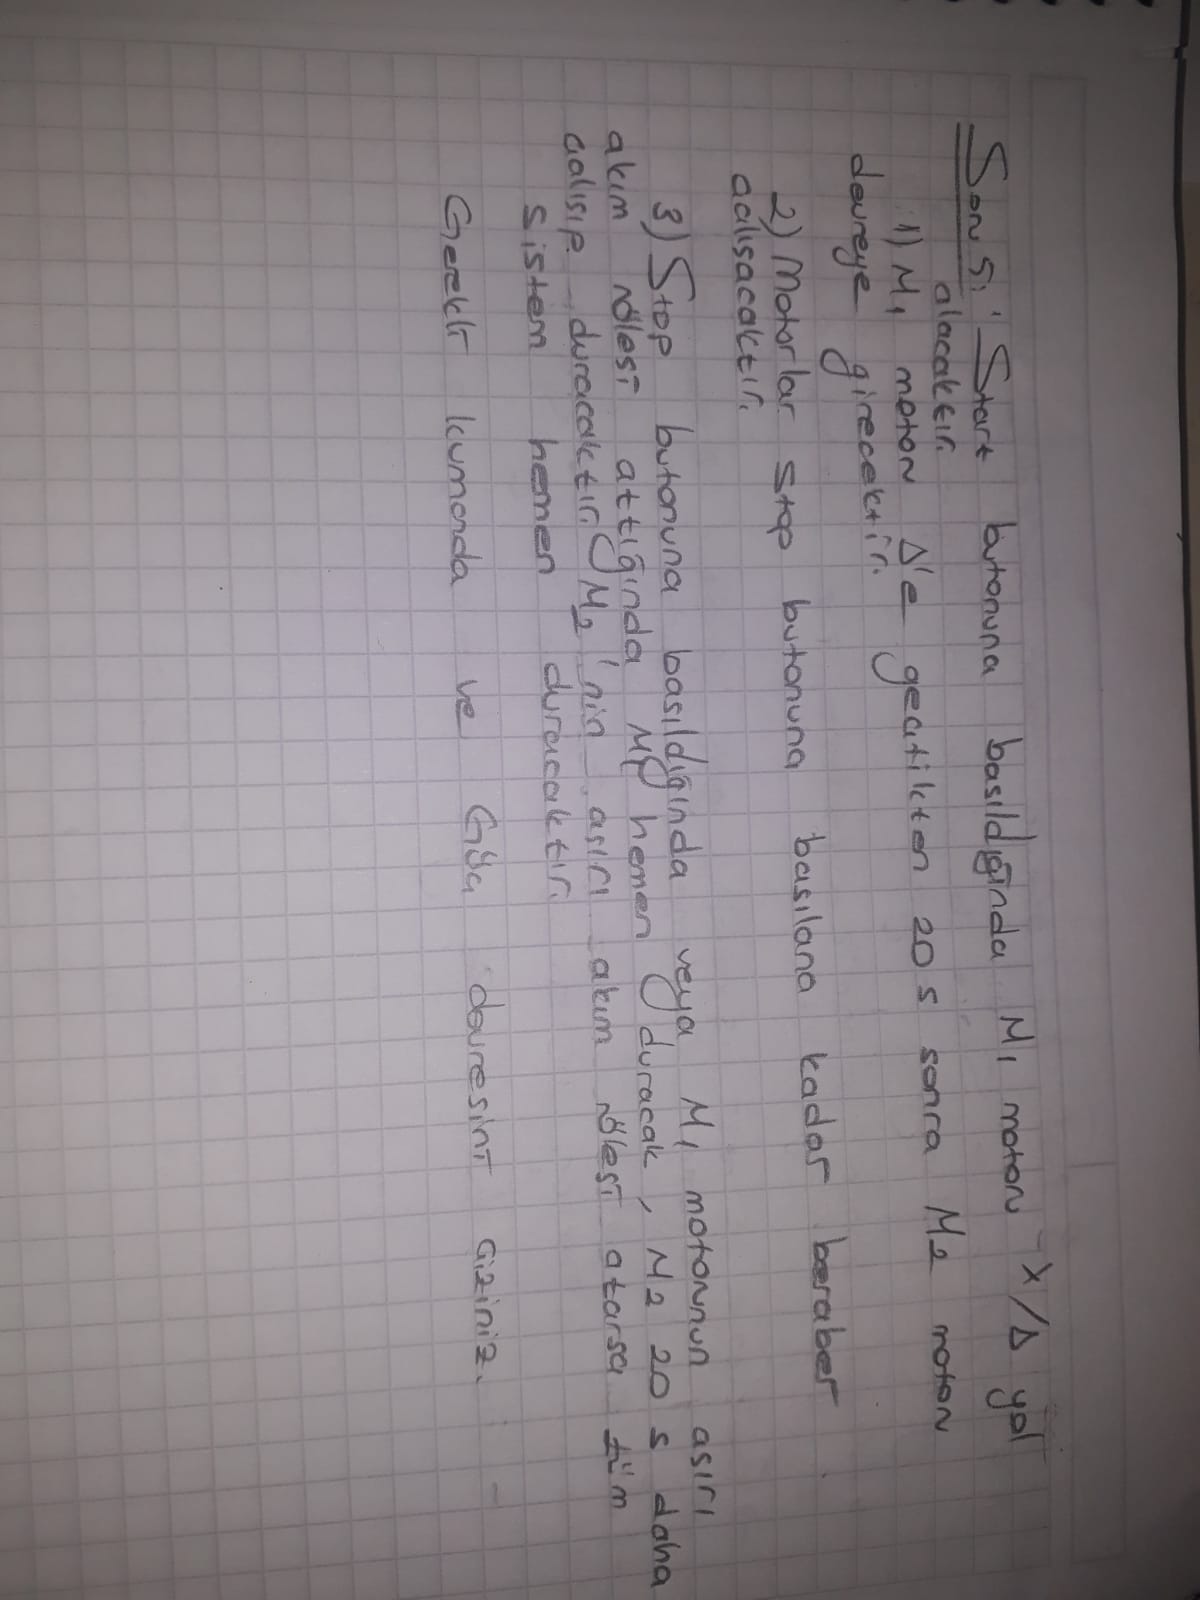 Soru 5: Start butonuna basıldığında M1 motoru λ/Δ yol
alacaktır.
1) M1 motoru Δ'e geçtikten 20 s sonra M2 motoru
devreye girecektir.
2) Motorlar Stop butonuna basılana kadar beraber
çalışacaktır.
3) Stop butonuna basıldığında veya M1 motorunun aşırı
akım rölesi attığında M1 hemen duracak, M2 20 s daha
çalışıp duracaktır. M2'nin aşırı akım rölesi atarsa tüm
sistem hemen duracaktır.
Gerekli kumanda ve Güç devresini çiziniz.